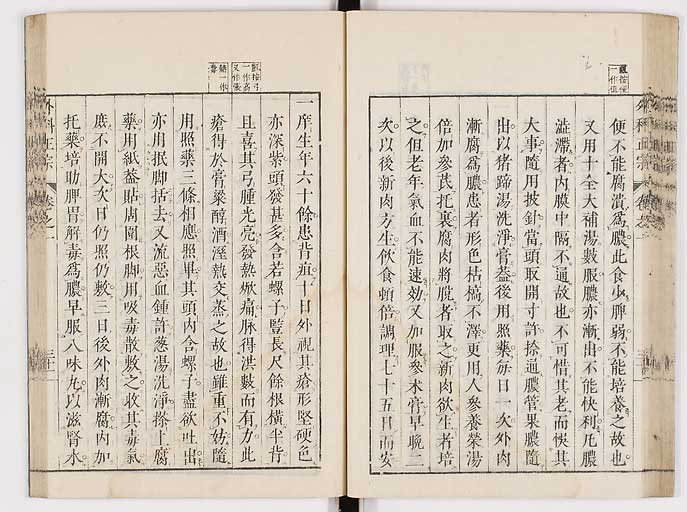 便不能腐潰爲膿此食少脾弱不能培養之故也
又用十全大補湯數服膿亦漸出不能快利凡膿
澁滯者內膜中隔不通故也不可惜其老而悞其
大事隨用披針當頭取開寸許捺通膿管果膿隨
出以猪蹄湯洗淨膏葢後用照藥每日一次外肉
漸腐爲膿患者形色枯槁不澤更用人參養榮湯
倍加參芪托裏腐肉將脫者取之新肉欲生者培
之但老年氣血不能速効又加服參朮膏早晚二
次以後新肉方生飲食頓倍調理七十五日而安
一庠生年六十餘患背疽十日外視其瘡形堅硬色
亦深紫頭發甚多含若螺子豎長尺餘根橫半背
且喜其弓腫光亮發熱焮痛脉得洪數而有力此
瘡得於膏粱醇酒溼熱交蒸之故也雖重不妨隨
用照藥三條相應照畢其頭內含螺子盡欲吐出
亦用抿脚括去又流惡血鍾許葱湯洗淨捺上腐
藥用紙葢貼周圍根脚用吸毒散敷之收其毒氣
庶不開大次日仍照仍敷三日後外肉漸腐內加
托藥培助脾胃解毒爲膿早服八味丸以滋腎水
外科正宗
卷之一